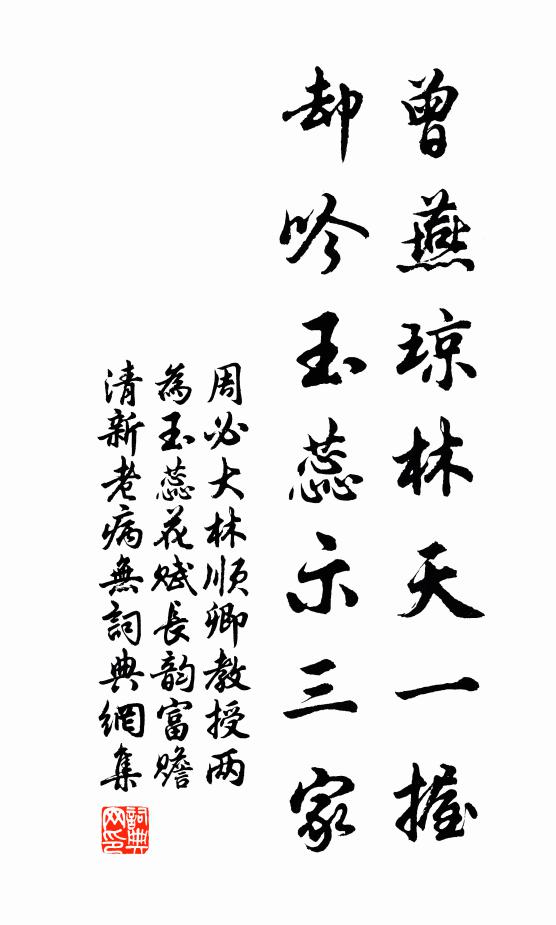 曾燕琼林天一握
却吟玉蕊示三家
周必大林顺卿教授两
為玉蕊花赋長韵富赡
清新老病無詞典網集
詞典网印